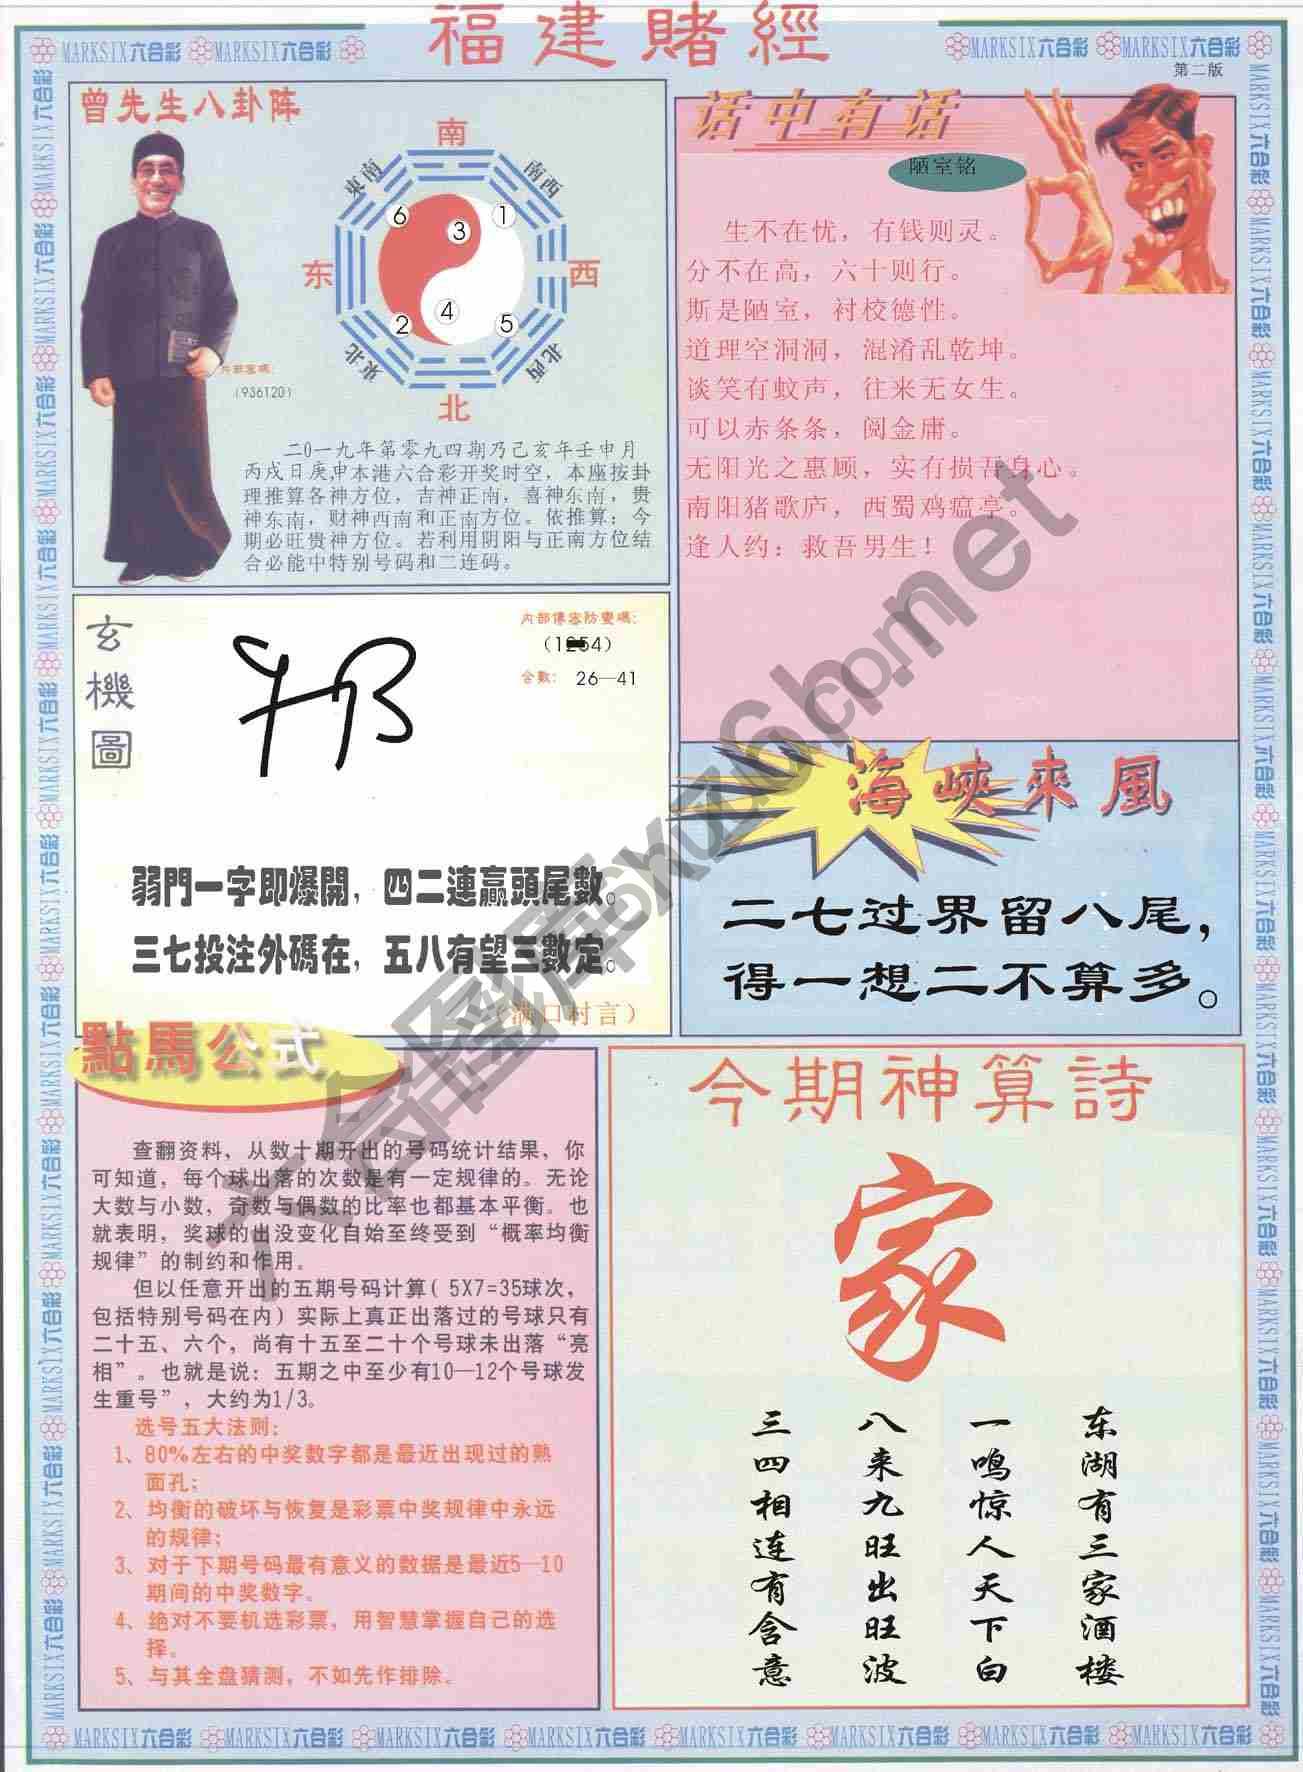 福建賭經
MARKSIX六合彩 MARKSIX六合彩
MARKSIX六合彩 MARKSIX六合彩
第二版
曾先生八卦阵
南
東南
南西
6
3
1
东
西
2
4
5
東北
北西
北
内部密碼:
(936120)
二0一九年第零九四期乃己亥年壬申月
丙戌日庚申本港六合彩开奖时空,本座按卦
理推算各神方位,吉神正南,喜神东南,贵
神东南,财神西南和正南方位。依推算:今
期必旺贵神方位。若利用阴阳与正南方位结
合必能中特别号码和二连码。
话中有话
陋室铭
生不在忧,有钱则灵。
分不在高,六十则行。
斯是陋室,衬校德性。
道理空洞洞,混淆乱乾坤。
谈笑有蚊声,往来无女生。
可以赤条条,阅金庸。
无阳光之惠顾,实有损吾身心。
南阳猪歌庐,西蜀鸡瘟亭。
逢人约:救吾男生!
玄機圖
内部傳密防變碼:
合數: 26—41
弱門一字即爆開,四二連贏頭尾數。
三七投注外碼在,五八有望三數定。
(满口村言)
海峽來風
二七过界留八尾,
得一想二不算多。
點馬公式
查翻资料,从数十期开出的号码统计结果,你
可知道,每个球出落的次数是有一定规律的。无论
大数与小数,奇数与偶数的比率也都基本平衡。也
就表明,奖球的出没变化自始至终受到“概率均衡
规律”的制约和作用。
但以任意开出的五期号码计算( 5X7=35球次,
包括特别号码在内)实际上真正出落过的号球只有
二十五、六个,尚有十五至二十个号球未出落“亮
相”。也就是说:五期之中至少有10—12个号球发
生重号”,大约为1/3。
选号五大法则:
1、80%左右的中奖数字都是最近出现过的熟
面孔;
2、均衡的破坏与恢复是彩票中奖规律中永远
的规律;
3、对于下期号码最有意义的数据是最近5—10
期间的中奖数字。
4、绝对不要机选彩票,用智慧掌握自己的选
择。
5、与其全盘猜测,不如先作排除。
今期神算詩
家
东湖有三家酒楼
一鸣惊人天下白
八来九旺出旺波
三四相连有含意